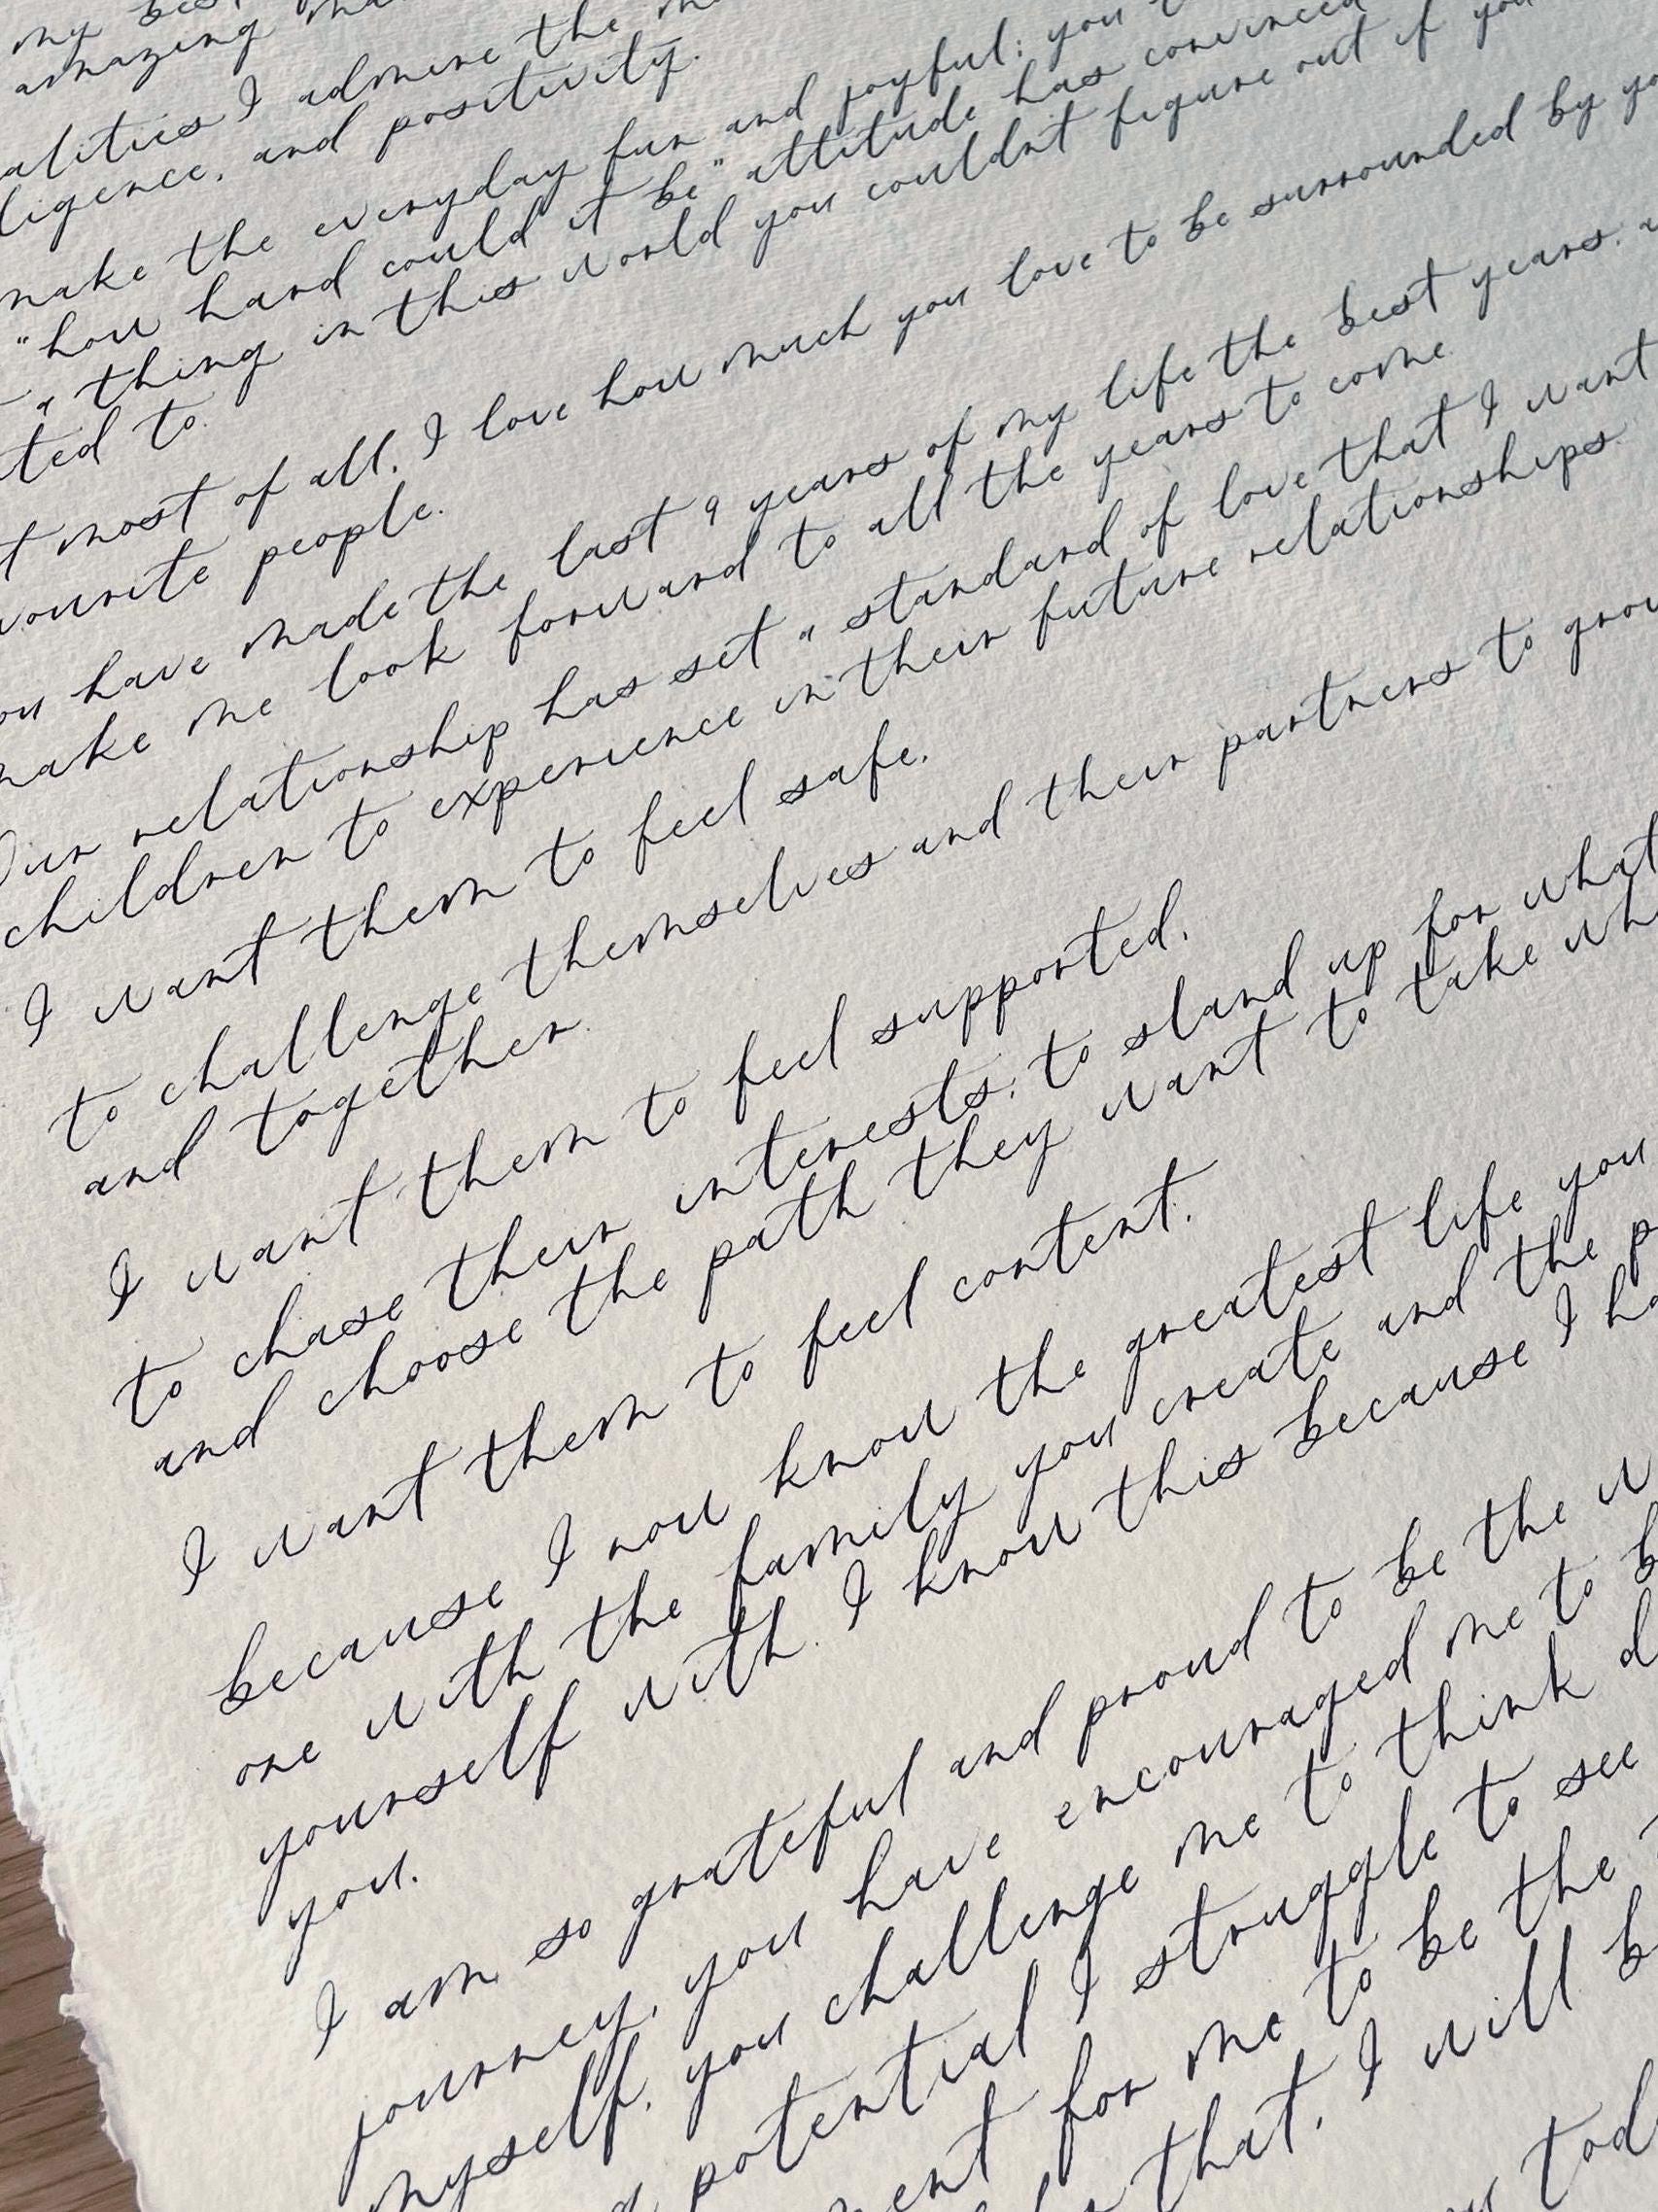 my best
amazing
alities I admire the
ligence, and positivity.
make the everyday fun and joyful; you
"how hard could it be" attitude has convinced
a thing in this world you couldnt figure out if you
ted to.
t most of all, I love how much you love to be surrounded by yo
vourite people.
ou have made the last 9 years of my life the best years, a
make me look forward to all the years to come.
Our relationship has set a standard of love that I want
children to experience in their future relationships.
I want them to feel safe,
to challenge themselves and their partners to grow
and together.
I want them to feel supported,
to chase their interests, to stand up for what
and choose the path they want to take wh
I want them to feel content,
because I now know the greatest life you
one with the family you create and the p
yourself with. I know this because I ha
you.
I am so grateful and proud to be the w
journey, you have encouraged me to b
myself, you challenge me to think d
potential I struggle to see
ent for me to be the
that, I will b
tod